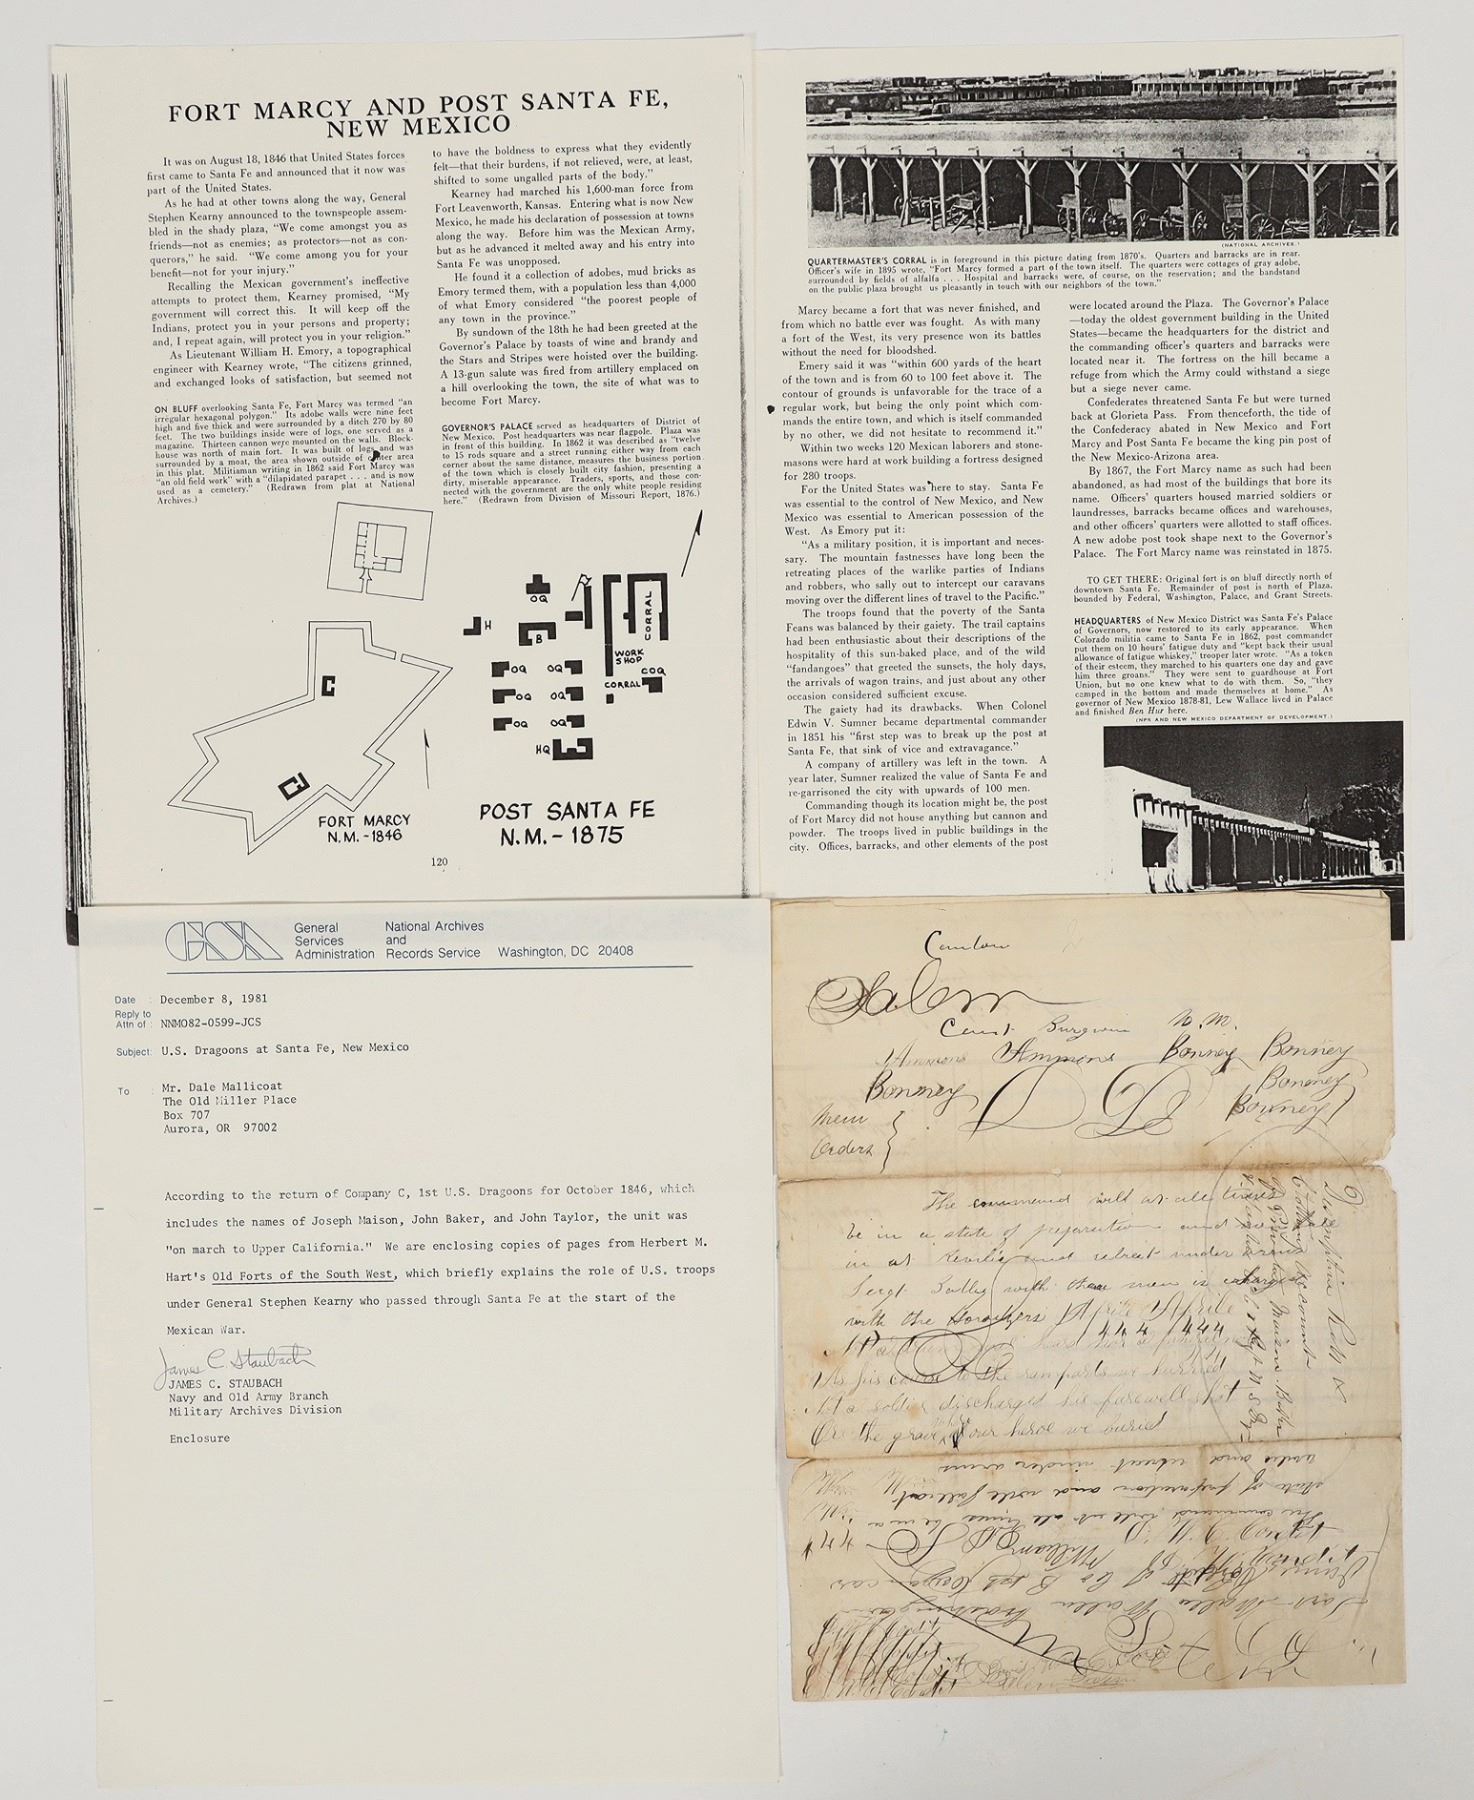 FORT MARCY AND POST SANTA FE,
NEW MEXICO
It was on August 18, 1846 that United States forces
first came to Santa Fe and announced that it now was
part of the United States.
As he had at other towns along the way, General
Stephen Kearny announced to the townspeople assem-
bled in the shady plaza, “We come amongst you as
friends—not as enemies; as protectors—not as con-
querors,” he said. “We come among you for your
benefit—not for your injury.”
Recalling the Mexican government's ineffective
attempts to protect them, Kearney promised, “My
government will correct this. It will keep off the
Indians, protect you in your persons and property;
and, I repeat again, will protect you in your religion.”
As Lieutenant William H. Emory, a topographical
engineer with Kearney wrote, “The citizens grinned,
and exchanged looks of satisfaction, but seemed not
to have the boldness to express what they evidently
felt—that their burdens, if not relieved, were, at least,
shifted to some ungalled parts of the body.”
Kearney had marched his 1,600-man force from
Fort Leavenworth, Kansas. Entering what is now New
Mexico, he made his declaration of possession at towns
along the way. Before him was the Mexican Army,
but as he advanced it melted away and his entry into
Santa Fe was unopposed.
He found it a collection of adobes, mud bricks as
Emory termed them, with a population less than 4,000
of what Emory considered “the poorest people of
any town in the province.”
By sundown of the 18th he had been greeted at the
Governor's Palace by toasts of wine and brandy and
the Stars and Stripes were hoisted over the building.
A 13-gun salute was fired from artillery emplaced on
a hill overlooking the town, the site of what was to
become Fort Marcy.
ON BLUFF overlooking Santa Fe, Fort Marcy was termed “an
irregular hexagonal polygon.” Its adobe walls were nine feet
high and five thick and were surrounded by a ditch 270 by 80
feet. The two buildings inside were of logs, one served as a
magazine. Thirteen cannon were mounted on the walls. Block-
house was north of main fort. It was built of logs and was
surrounded by a moat, the area shown outside of center area
in this plat. Militiaman writing in 1862 said Fort Marcy was
“an old field work” with a “dilapidated parapet . . . and is now
used as a cemetery.” (Redrawn from plat at National
Archives.)
GOVERNOR'S PALACE served as headquarters of District of
New Mexico. Post headquarters was near flagpole. Plaza was
in front of this building. In 1862 it was described as “twelve
to 15 rods square and a street running either way from each
corner about the same distance, measures the business portion
of the town which is closely built city fashion, presenting a
dirty, miserable appearance. Traders, sports, and those con-
nected with the government are the only white people residing
here.” (Redrawn from Division of Missouri Report, 1876.)
OQ
H
B
CORRAL
WORK
SHOP
OQ OQ
COQ
CORRAL
OQ OQ
OQ OQ
HQ
FORT MARCY
N.M. -1846
POST SANTA FE
N.M. - 1875
120
(NATIONAL ARCHIVES.)
QUARTERMASTER'S CORRAL is in foreground in this picture dating from 1870's. Quarters and barracks are in rear.
Officer's wife in 1895 wrote, “Fort Marcy formed a part of the town itself. The quarters were cottages of gray adobe,
surrounded by fields of alfalfa . . . Hospital and barracks were, of course, on the reservation; and the bandstand
on the public plaza brought us pleasantly in touch with our neighbors of the town.”
Marcy became a fort that was never finished, and
from which no battle ever was fought. As with many
a fort of the West, its very presence won its battles
without the need for bloodshed.
Emery said it was “within 600 yards of the heart
of the town and is from 60 to 100 feet above it. The
contour of grounds is unfavorable for the trace of a
regular work, but being the only point which com-
mands the entire town, and which is itself commanded
by no other, we did not hesitate to recommend it.”
Within two weeks 120 Mexican laborers and stone-
masons were hard at work building a fortress designed
for 280 troops.
For the United States was here to stay. Santa Fe
was essential to the control of New Mexico, and New
Mexico was essential to American possession of the
West. As Emory put it:
“As a military position, it is important and neces-
sary. The mountain fastnesses have long been the
retreating places of the warlike parties of Indians
and robbers, who sally out to intercept our caravans
moving over the different lines of travel to the Pacific.”
The troops found that the poverty of the Santa
Feans was balanced by their gaiety. The trail captains
had been enthusiastic about their descriptions of the
hospitality of this sun-baked place, and of the wild
“fandangoes” that greeted the sunsets, the holy days,
the arrivals of wagon trains, and just about any other
occasion considered sufficient excuse.
The gaiety had its drawbacks. When Colonel
Edwin V. Sumner became departmental commander
in 1851 his “first step was to break up the post at
Santa Fe, that sink of vice and extravagance.”
A company of artillery was left in the town. A
year later, Sumner realized the value of Santa Fe and
re-garrisoned the city with upwards of 100 men.
Commanding though its location might be, the post
of Fort Marcy did not house anything but cannon and
powder. The troops lived in public buildings in the
city. Offices, barracks, and other elements of the post
were located around the Plaza. The Governor's Palace
—today the oldest government building in the United
States—became the headquarters for the district and
the commanding officer's quarters and barracks were
located near it. The fortress on the hill became a
refuge from which the Army could withstand a siege
but a siege never came.
Confederates threatened Santa Fe but were turned
back at Glorieta Pass. From thenceforth, the tide of
the Confederacy abated in New Mexico and Fort
Marcy and Post Santa Fe became the king pin post of
the New Mexico-Arizona area.
By 1867, the Fort Marcy name as such had been
abandoned, as had most of the buildings that bore its
name. Officers' quarters housed married soldiers or
laundresses, barracks became offices and warehouses,
and other officers' quarters were allotted to staff offices.
A new adobe post took shape next to the Governor's
Palace. The Fort Marcy name was reinstated in 1875.
TO GET THERE: Original fort is on bluff directly north of
downtown Santa Fe. Remainder of post is north of Plaza,
bounded by Federal, Washington, Palace, and Grant Streets.
HEADQUARTERS of New Mexico District was Santa Fe's Palace
of Governors, now restored to its early appearance. When
Colorado militia came to Santa Fe in 1862, post commander
put them on 10 hours' fatigue duty and “kept back their usual
allowance of fatigue whiskey,” trooper later wrote. “As a token
of their esteem, they marched to his quarters one day and gave
him three groans.” They were sent to guardhouse at Fort
Union, but no one knew what to do with them. So, “they
camped in the bottom and made themselves at home.” As
governor of New Mexico 1878-81, Lew Wallace lived in Palace
and finished Ben Hur here.
(NPS AND NEW MEXICO DEPARTMENT OF DEVELOPMENT.)
GSA
General
Services
Administration
National Archives
and
Records Service Washington, DC 20408
Date : December 8, 1981
Reply to
Attn of : NNMO82-0599-JCS
Subject: U.S. Dragoons at Santa Fe, New Mexico
To : Mr. Dale Mallicoat
The Old Miller Place
Box 707
Aurora, OR 97002
According to the return of Company C, 1st U.S. Dragoons for October 1846, which
includes the names of Joseph Maison, John Baker, and John Taylor, the unit was
"on march to Upper California." We are enclosing copies of pages from Herbert M.
Hart's Old Forts of the South West, which briefly explains the role of U.S. troops
under General Stephen Kearny who passed through Santa Fe at the start of the
Mexican War.
James C. Staubach
JAMES C. STAUBACH
Navy and Old Army Branch
Military Archives Division
Enclosure
Canton
Salem
Cant Burgwin N. M.
Ammons Ammons Bonney Bonney
Bonney Bonney
Bonney
Orders
The command will at all times
be in a state of preparation and
in at Reveille and retreat under arms
Sergt with men is charged
with the Howitzers
444 444
As his corse to the ramparts we hurried
Not a soldier discharged his farewell shot
O'er the grave where our hero we buried
Descriptive Roll &
Clothing Account
of Private
The command will at all times be in a
state of preparation and will
and retreat under arms
William
of Co B 1st
Walla Walla Washington